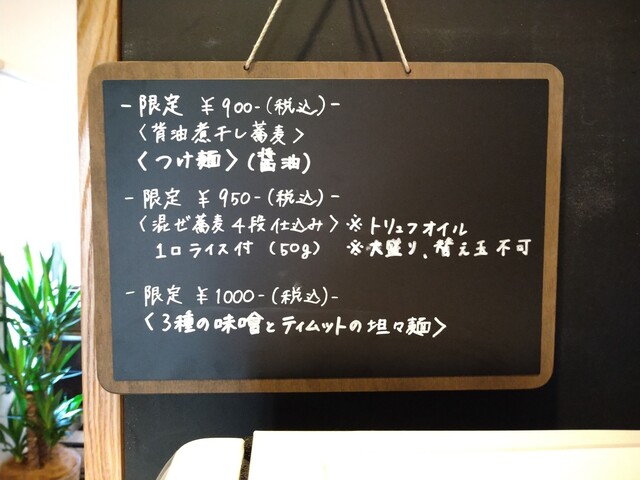 -限定 ¥900-(税込)-
〈背油煮干し蕎麦〉
〈つけ麺〉(醤油)
-限定 ¥950-(税込)-
〈混ぜ蕎麦4段仕込み〉※トリュフオイル
1口ライス付 (50g) ※大盛り、替え玉不可
-限定 ¥1000-(税込)-
〈3種の味噌とティムットの坦々麺〉